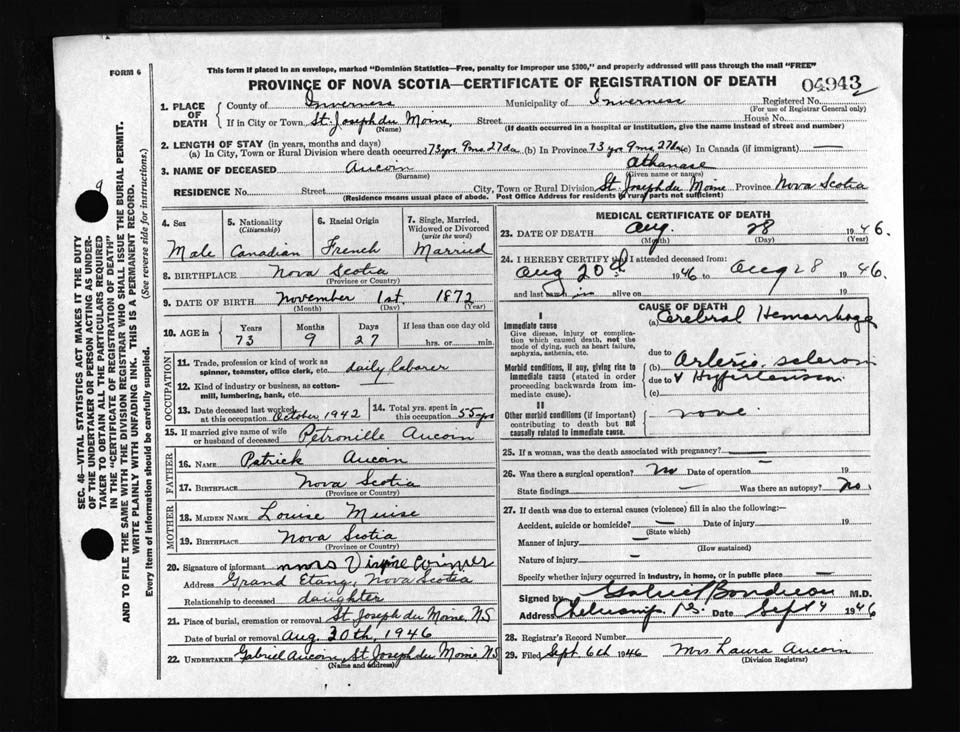 FORM 6
This form if placed in an envelope, marked "Dominion Statistics—Free, penalty for improper use $300," and properly addressed will pass through the mail "FREE"
PROVINCE OF NOVA SCOTIA—CERTIFICATE OF REGISTRATION OF DEATH
04943
1. PLACE OF DEATH
County of Inverness Municipality of Inverness Registered No.
(For use of Registrar General only)
If in City or Town St. Joseph du Moine, Street House No.
(Name) (If death occurred in a hospital or institution, give the name instead of street and number)
2. LENGTH OF STAY (in years, months and days)
(a) In City, Town or Rural Division where death occurred 73 yrs 9 ms. 27 da (b) In Province 73 yrs 9 ms. 27 da (c) In Canada (if immigrant) —
3. NAME OF DECEASED Aucoin Athanase
(Surname) (Given name or names)
RESIDENCE No. Street City, Town or Rural Division St. Joseph du Moine Province Nova Scotia
(Residence means usual place of abode. Post Office Address for residents in rural parts not sufficient)
4. Sex
Male
5. Nationality
(Citizenship)
Canadian
6. Racial Origin
French
7. Single, Married, Widowed or Divorced
(write the word)
Married
8. BIRTHPLACE Nova Scotia
(Province or Country)
9. DATE OF BIRTH November 1st. 1872
(Month) (Day) (Year)
10. AGE in Years Months Days If less than one day old
73 9 27 hrs. or min.
OCCUPATION
11. Trade, profession or kind of work as spinner, teamster, office clerk, etc. daily laborer
12. Kind of industry or business, as cotton-mill, lumbering, bank, etc. —
13. Date deceased last worked at this occupation October 1942
14. Total yrs. spent in this occupation 55 yrs
15. If married give name of wife or husband of deceased Petronille Aucoin
FATHER
16. NAME Patrick Aucoin
17. BIRTHPLACE Nova Scotia
(Province or Country)
MOTHER
18. MAIDEN NAME Louise Muise
19. BIRTHPLACE Nova Scotia
(Province or Country)
20. Signature of informant Mrs
Address Grand Etang, Nova Scotia
Relationship to deceased daughter
21. Place of burial, cremation or removal St Joseph du Moine, N.S
Date of burial or removal Aug. 30th, 1946
22. UNDERTAKER Gabriel Aucoin, St Joseph du Moine N.S
(Name and address)
MEDICAL CERTIFICATE OF DEATH
23. DATE OF DEATH Aug. 28 1946.
(Month) (Day) (Year)
24. I HEREBY CERTIFY that I attended deceased from:
Aug 20 1946 to Aug 28 1946.
and last saw alive on 19
CAUSE OF DEATH
I
Immediate cause
Give disease, injury or complication which caused death, not the mode of dying, such as heart failure, asphyxia, asthenia, etc.
(a) Cerebral Hemorrhage
due to
Morbid conditions, if any, giving rise to immediate cause (stated in order proceeding backwards from immediate cause).
(b) Arterio sclerosis
due to & Hypertension
(c)
II
Other morbid conditions (if important) contributing to death but not causally related to immediate cause.
none.
25. If a woman, was the death associated with pregnancy? —
26. Was there a surgical operation? No Date of operation — 19
State findings — Was there an autopsy? No.
27. If death was due to external causes (violence) fill in also the following:—
Accident, suicide or homicide? — Date of injury 19
(State which)
Manner of injury —
(How sustained)
Nature of injury —
Specify whether injury occurred in industry, in home, or in public place —
Signed by Gabriel Boudreau M.D.
Address Cheticamp N.S. Date Sept 4 1946
28. Registrar's Record Number
29. Filed Sept. 6th 1946 Mrs. Laura Aucoin
(Division Registrar)
SEC. 46—VITAL STATISTICS ACT MAKES IT THE DUTY
OF THE UNDERTAKER OR PERSON ACTING AS UNDER-
TAKER TO OBTAIN ALL THE PARTICULARS REQUIRED
IN THE "CERTIFICATE OF REGISTRATION OF DEATH"
AND TO FILE THE SAME WITH THE DIVISION REGISTRAR WHO SHALL ISSUE THE BURIAL PERMIT.
WRITE PLAINLY WITH UNFADING INK. THIS IS A PERMANENT RECORD.
Every item of information should be carefully supplied. (See reverse side for instructions.)
9